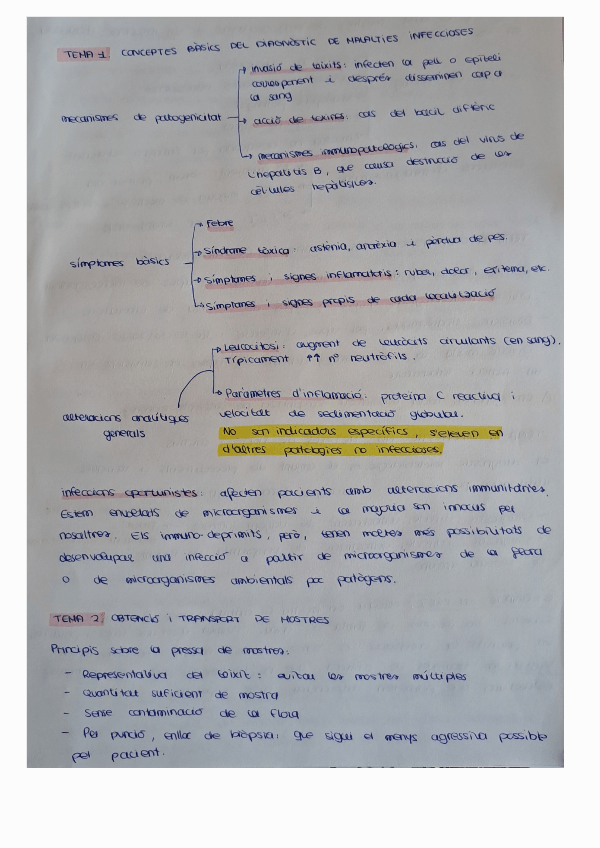 TEMA 1. CONCEPTES BÀSICS DEL DIAGNÒSTIC DE MALALTIES INFECCIOSES
mecanismes de patogenicitat
invasió de teixits: infecten la pell o epiteli
corresponent i després disseminen cap a
la sang
acció de toxines: cas del bacil diftèric
mecanismes immunopatològics: cas del virus de
l'hepatitis B, que causa destrucció de les
cèl·lules hepàtiques.
símptomes bàsics
Febre
Síndrome tòxica: astènia, anorèxia i pèrdua de pes.
Símptomes i signes inflamatoris: rubor, dolor, eritema, etc.
Símptomes i signes propis de cada localització
alteracions analítiques
generals
Leucocitosi: augment de leucòcits circulants (en sang).
Típicament ↑↑ nº neutròfils.
Paràmetres d'inflamació: proteïna C reactiva i
velocitat de sedimentació globular.
No son indicadors específics, s'eleven en
d'altres patologies no infeccioses.
infeccions oportunistes: afecten pacients amb alteracions immunitàries.
Estem envoltats de microorganismes i la majoria son innocus per
nosaltres. Els immuno-deprimits, però, tenen moltes més possibilitats de
desenvolupar una infecció a partir de microorganismes de la flora
o de microorganismes ambientals poc patògens.
TEMA 2. OBTENCIÓ I TRANSPORT DE MOSTRES
Principis sobre la pressa de mostres:
- Representativa del teixit: evitar les mostres múltiples
- Quantitat suficient de mostra
- Sense contaminació de la flora
- Per punció, enlloc de biòpsia: que sigui el menys agressiva possible
pel pacient.